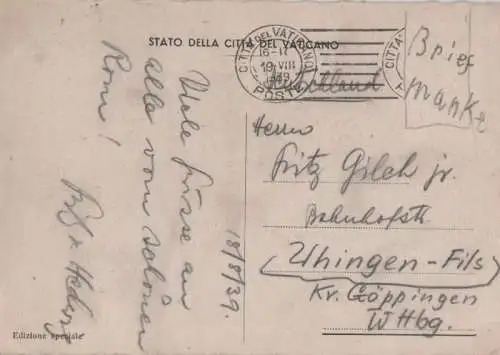 STATO DELLA CITTÀ DEL VATICANO
CITTÀ DEL VATICANO
16-17
19 VIII
1939
POSTE
CITTÀ
Brief
marke
Viele Grüsse an
alle vom schönen
Rom!
18/8/39.
Herrn
Fritz Gilch jr.
Bahnhofstr
Uhingen-Fils
Kr. Göppingen
W Hbg.
Edizione speciale